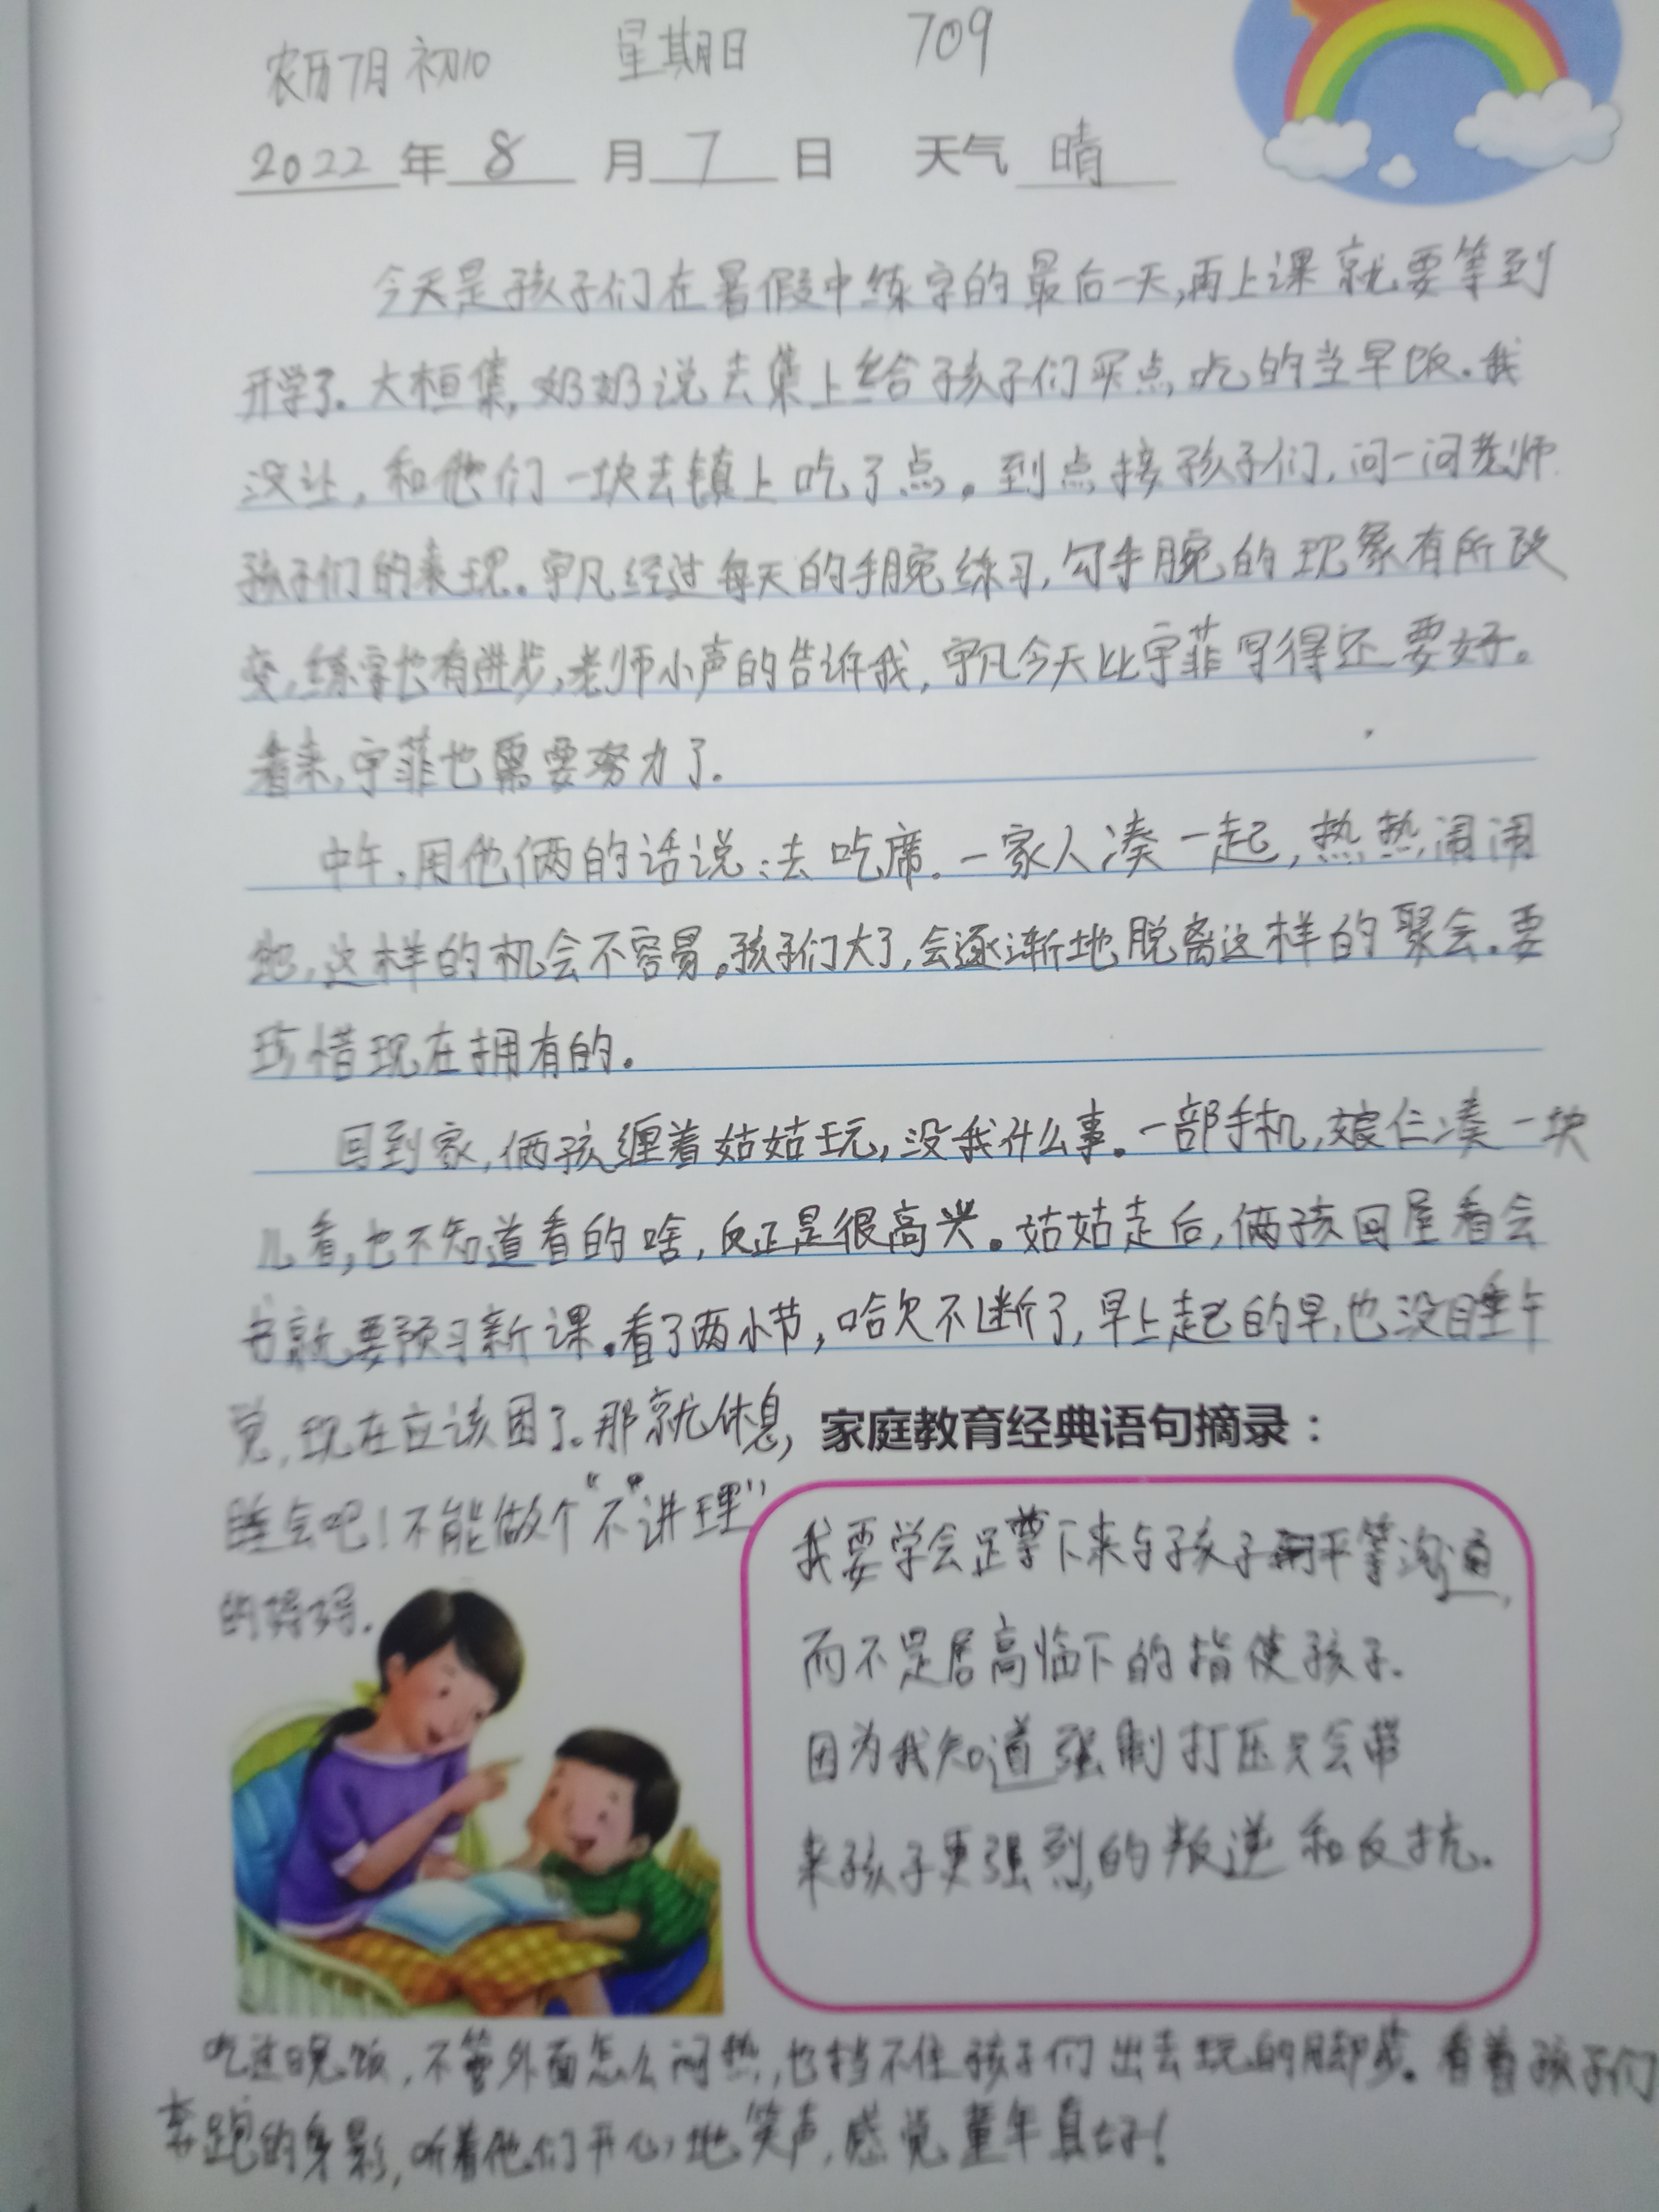 农历7月初10 星期日 709
2022年8月7日 天气 晴
今天是孩子们在暑假中练字的最后一天,再上课就要等到
开学了。大桓集,奶奶说去集上给孩子们买点吃的当早饭。我
没让,和他们一块去镇上吃了点。到点接孩子们,问一问老师
孩子们的表现。宇凡经过每天的手腕练习,勾手腕的现象有所改
变,练字也有进步,老师小声的告诉我,宇凡今天比宇菲写得还要好。
看来,宇菲也需要努力了。
中午,用他俩的话说:去吃席。一家人凑一起,热热闹闹
的,这样的机会不容易。孩子们大了,会逐渐地脱离这样的聚会。要
珍惜现在拥有的。
回到家,俩孩缠着姑姑玩,没我什么事。一部手机,娘仨凑一块
儿看,也不知道看的啥,反正是很高兴。姑姑走后,俩孩回屋看会
书就要预习新课。看了两小节,哈欠不断了,早上起的早,也没睡午
觉,现在应该困了。那就休息,
睡会吧!不能做个“不”讲理”
的妈妈.
家庭教育经典语句摘录:
我要学会足尊下来与孩子平等沟通,
而不是居高临下的指使孩子.
因为我知道强制打压只会带
来孩子更强烈的叛逆和反抗.
吃过晚饭,不管外面怎么闷热,也挡不住孩子们出去玩的脚步。看着孩子们
奔跑的身影,听着他们开心地笑声,感觉童年真好!